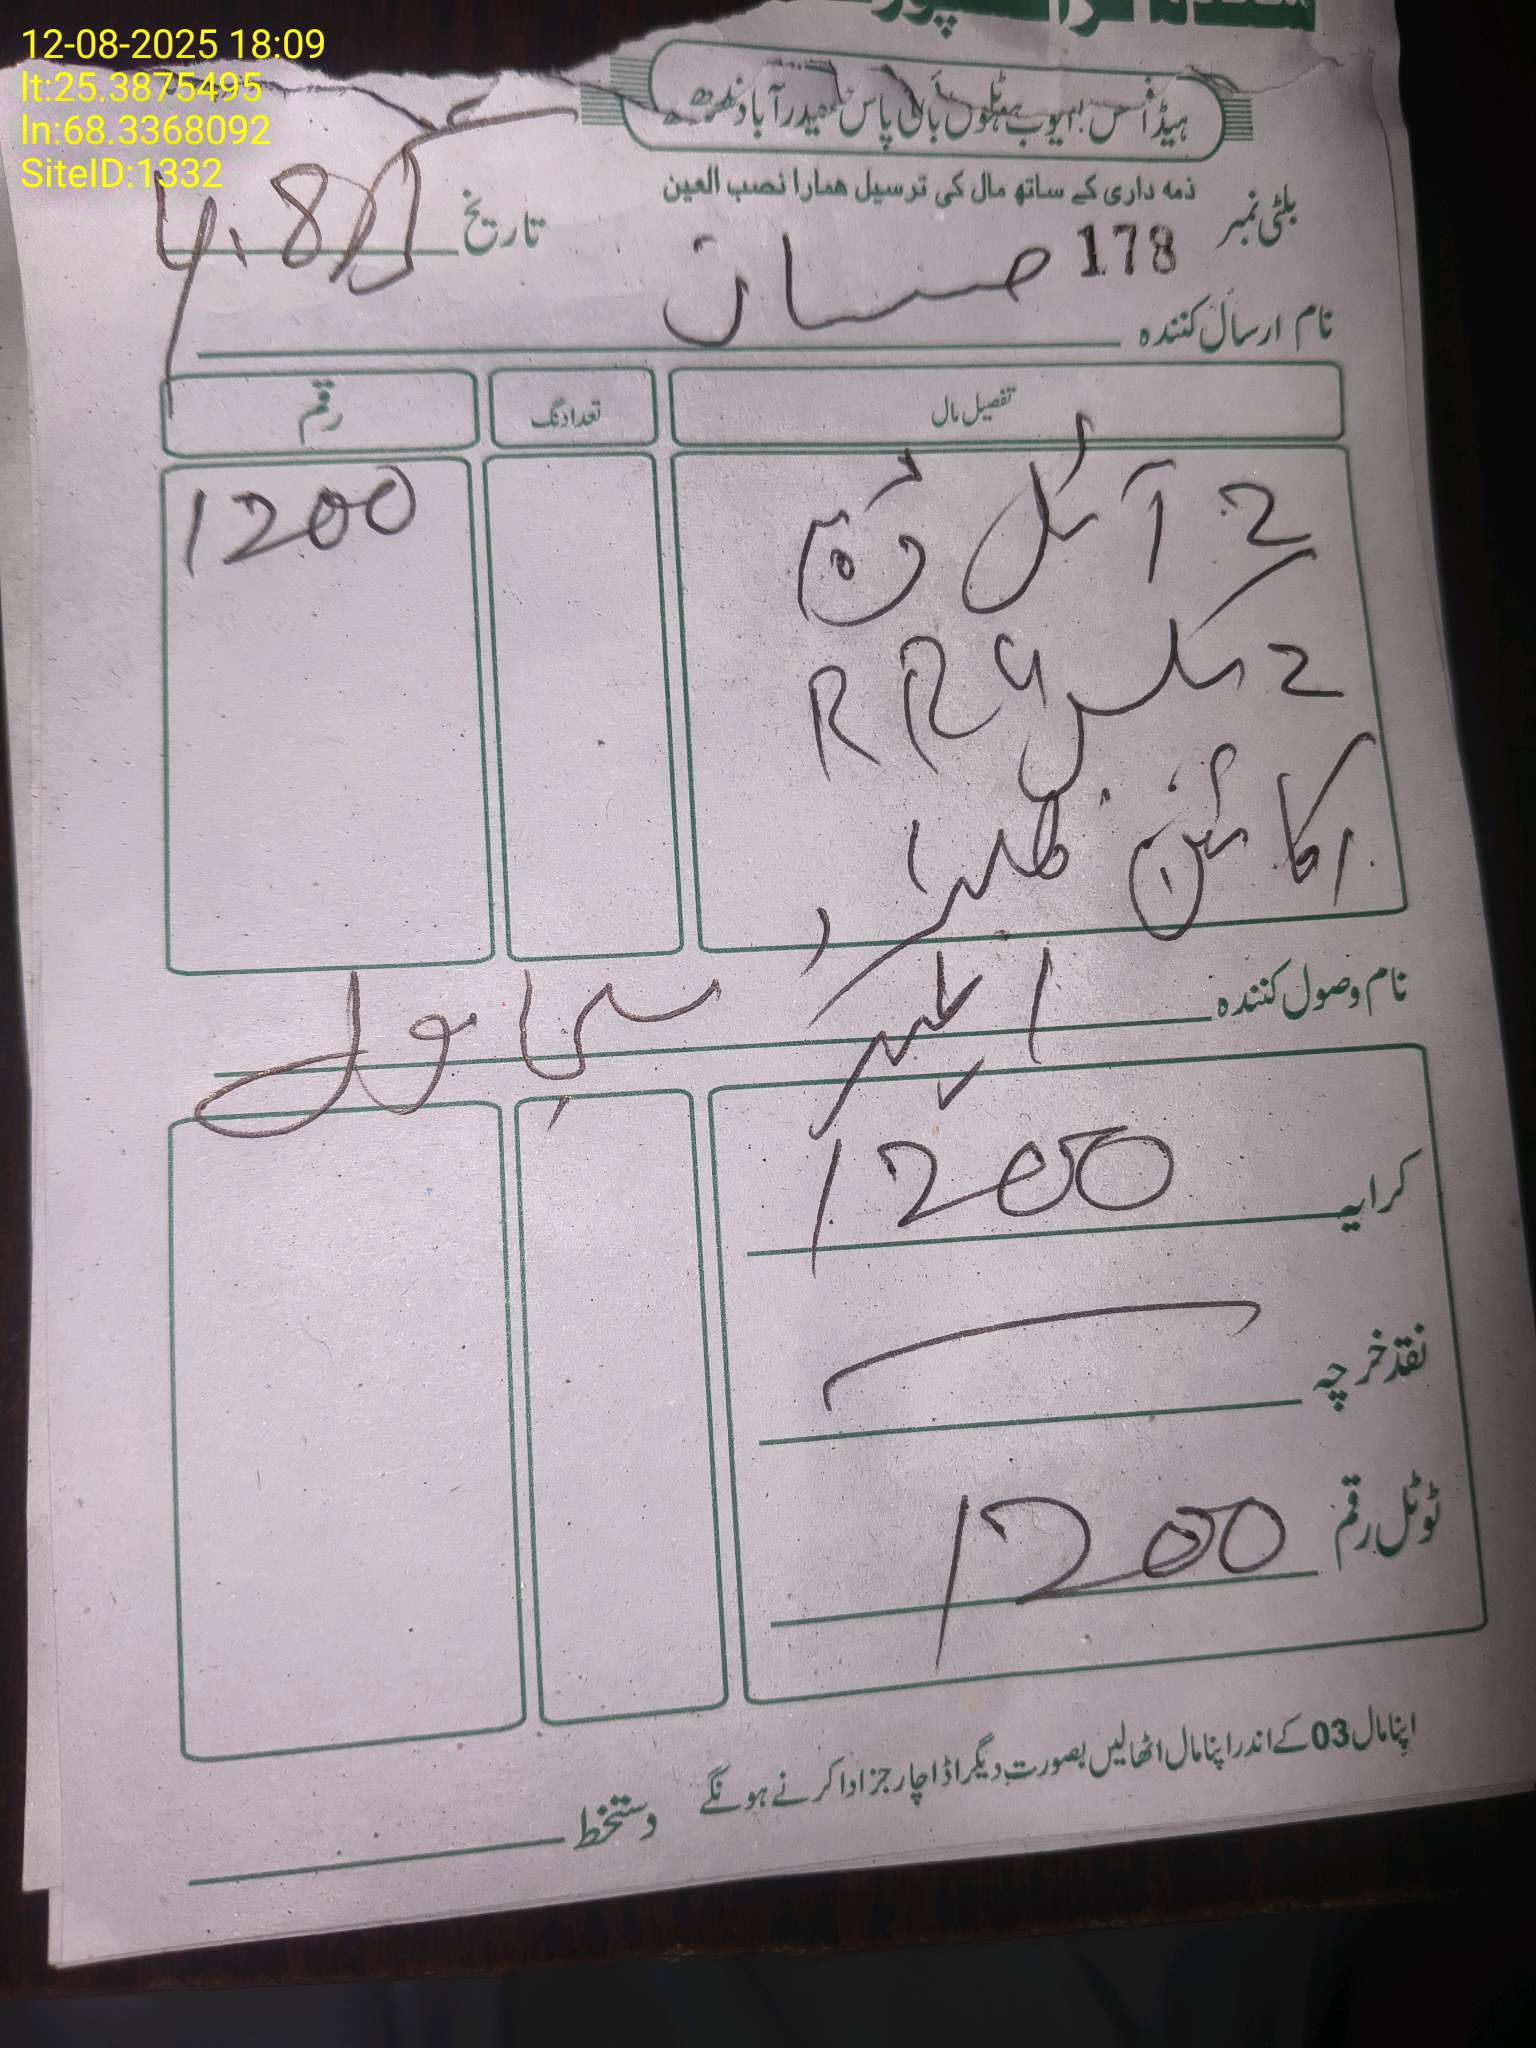 12-08-2025 18:09
lt:25.3875495
ln:68.3368092
SiteID:1332
ہیڈ آفس: ایوب ہوٹل بائی پاس حیدرآباد سندھ
ذمہ داری کے ساتھ مال کی ترسیل ہمارا نصب العین
بلٹی نمبر 178 تاریخ
نام ارسال کنندہ حسان
تفصیل مال تعداد نگ رقم
2 آئل 1200
2 RR
نام وصول کنندہ سجاول
کرایہ 1200
نقد خرچہ
ٹوٹل رقم 1200
اپنا مال 03 کے اندر اپنا مال اٹھالیں بصورت دیگر اڈا چارجز ادا کرنے ہونگے
دستخط